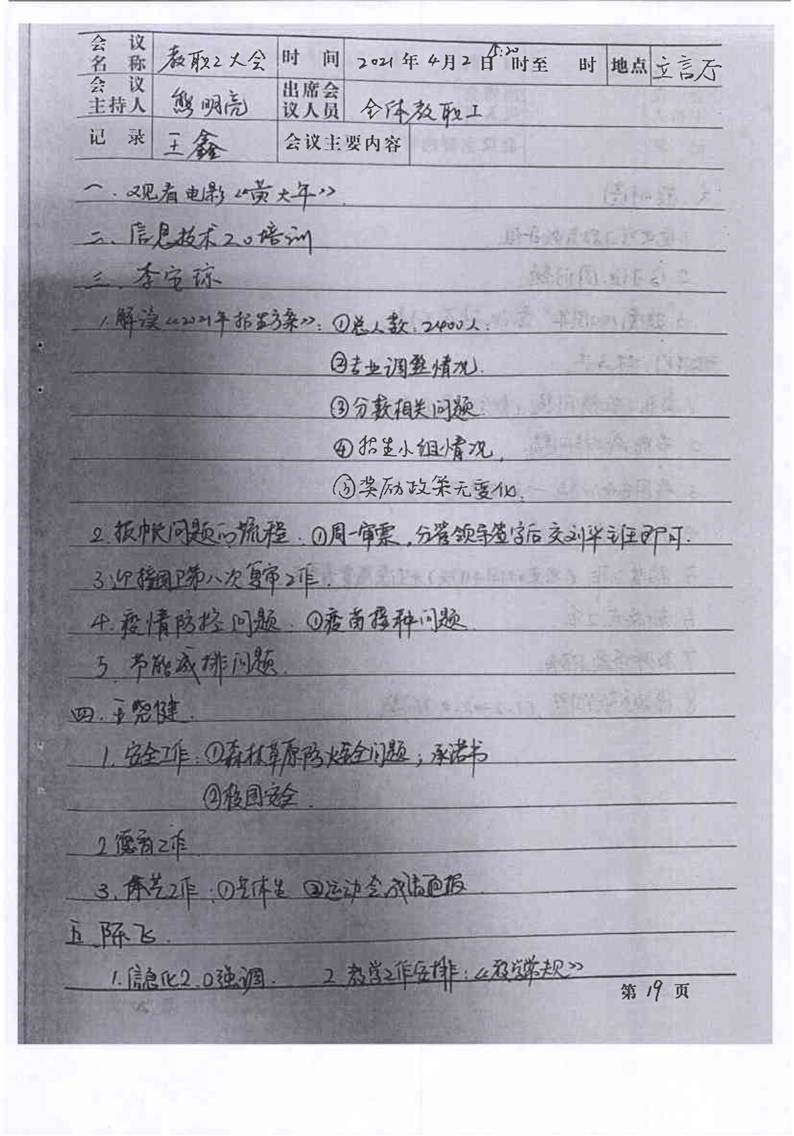 会议名称 教职工大会 时间 2021年4月2日 15:20 时至 时 地点 立言厅
会议主持人 熊明亮 出席会议人员 全体教职工
记录 王鑫 会议主要内容
一、观看电影《黄大年》
二、信息技术2.0培训
三、李宝琼
1.解读《2021年招生方案》:①总人数:2400人.
②专业调整情况.
③分数相关问题
④招生小组情况.
⑤奖励政策无变化.
2.报帐问题的流程.①周一审票,分管领导签字后交刘华主任即可.
3.迎接国卫第八次复审工作.
4.疫情防控问题.①疫苗接种问题
5.节能减排问题.
四、王尧健.
1.安全工作:①森林草原防火安全问题;承诺书
②校园安全.
2.德育工作
3.体艺工作:①艺体生 ②运动会成绩通报
五.陈飞.
1.信息化2.0强调. 2.教学工作安排:《教学常规》
第19页